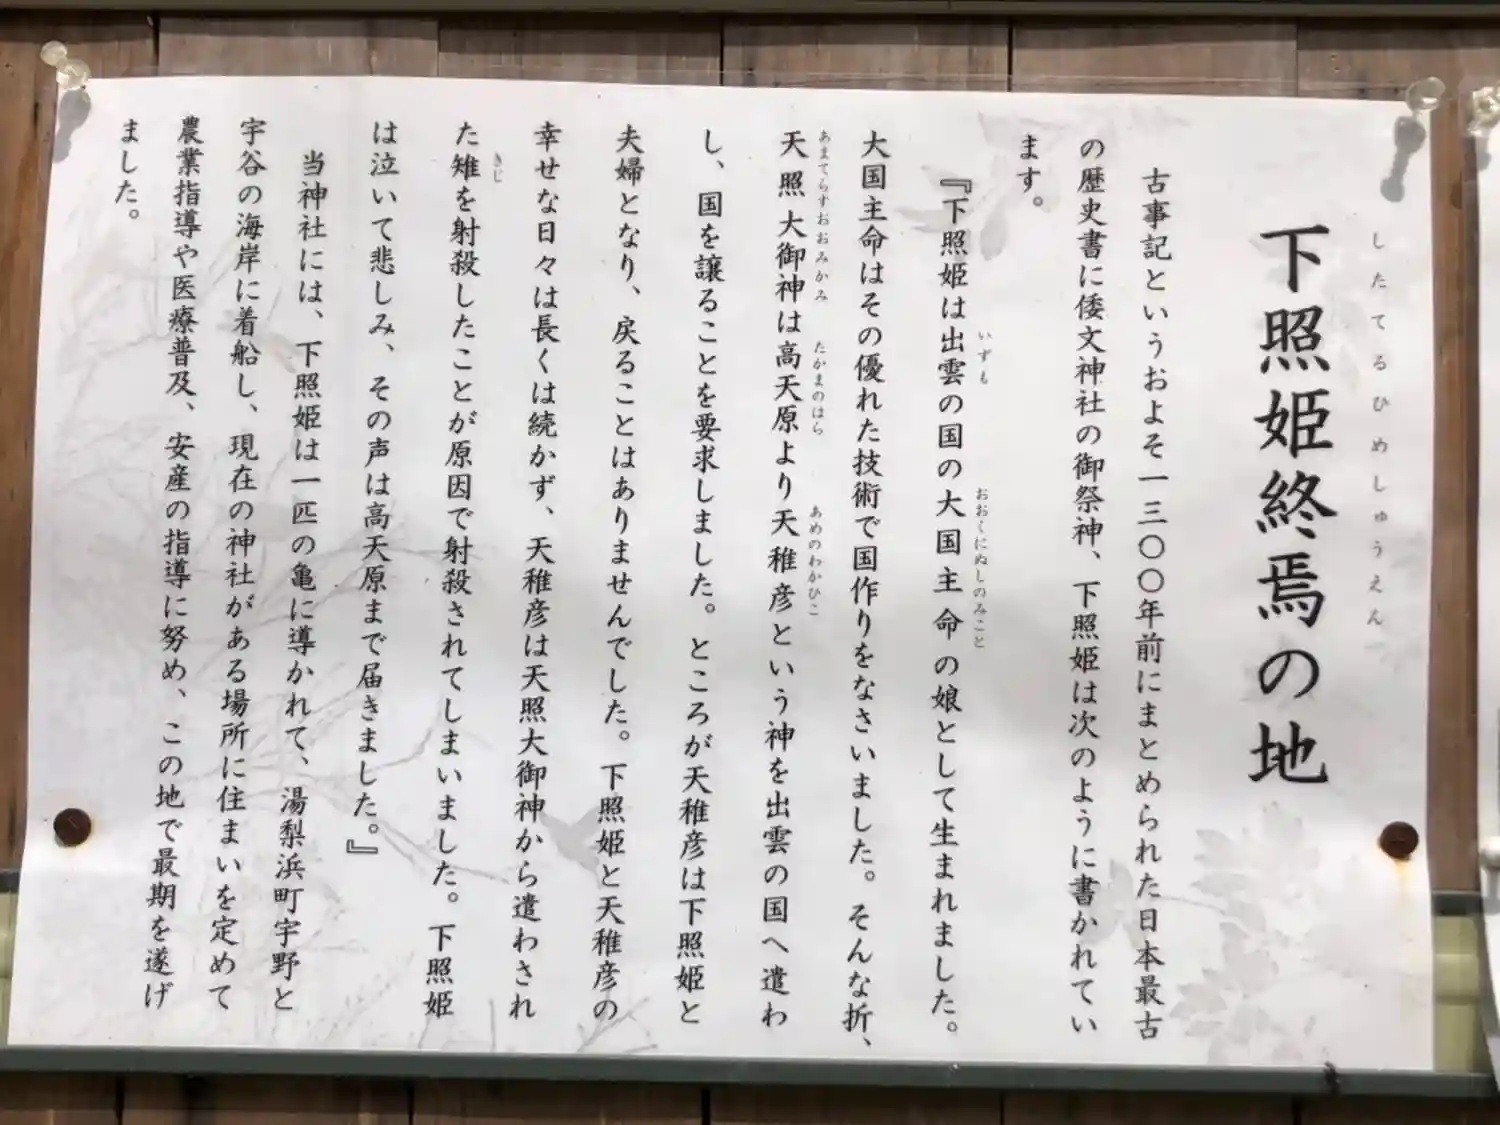 したてるひめしゅうえん
下照姫終焉の地
古事記というおよそ一三〇〇年前にまとめられた日本最古
の歴史書に倭文神社の御祭神、下照姫は次のように書かれてい
ます。
『下照姫は出雲の国の大国主命の娘として生まれました。
いずも
おおくにぬしのみこと
大国主命はその優れた技術で国作りをなさいました。そんな折、
天照大御神は高天原より天稚彦という神を出雲の国へ遣わ
あまてらすおおみかみ
たかまのはら
あめのわかひこ
し、国を譲ることを要求しました。ところが天稚彦は下照姫と
夫婦となり、戻ることはありませんでした。下照姫と天稚彦の
幸せな日々は長くは続かず、天稚彦は天照大御神から遣わされ
た雉を射殺したことが原因で射殺されてしまいました。下照姫
きじ
は泣いて悲しみ、その声は高天原まで届きました。』
当神社には、下照姫は一匹の亀に導かれて、湯梨浜町宇野と
宇谷の海岸に着船し、現在の神社がある場所に住まいを定めて
農業指導や医療普及、安産の指導に努め、この地で最期を遂げ
ました。